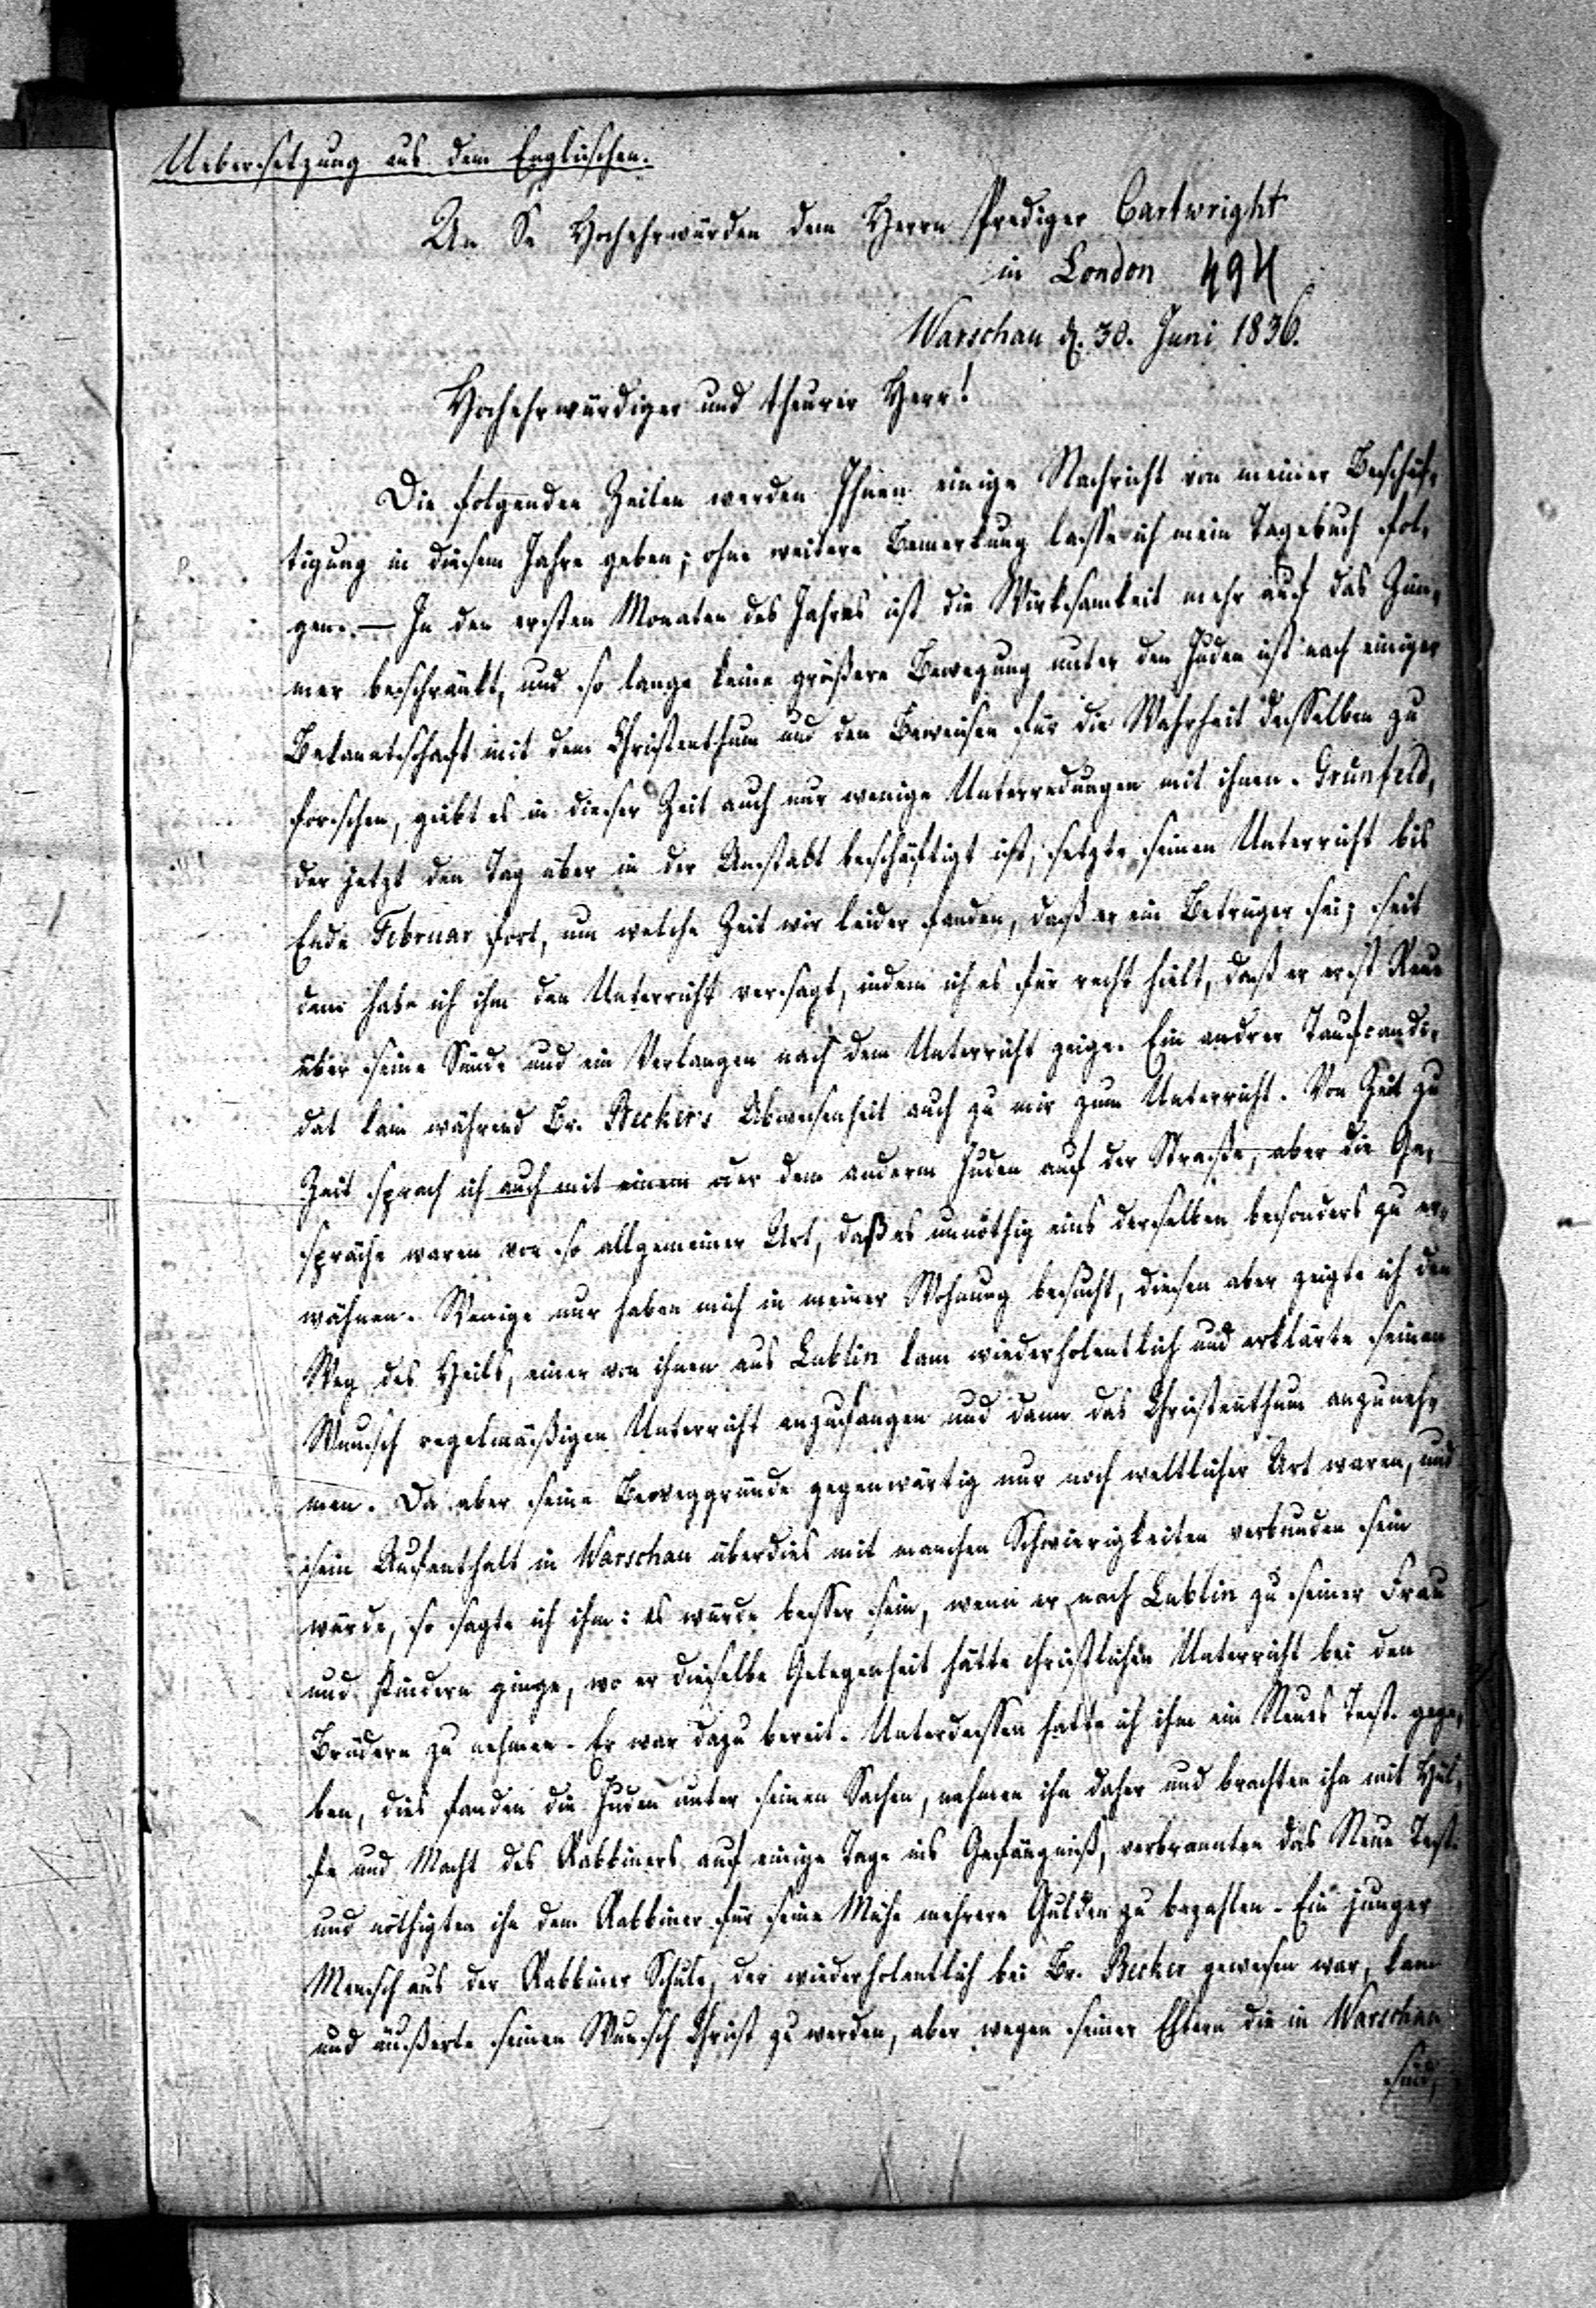 Uebersetzung aus dem Englischen.
An Se Hochehrwürden dem Herrn Prediger Cartwright
in London 494
Warschau d. 30. Juni 1836.
Hochehrwürdiger und theurer Herr!
Die folgenden Zeilen werden Ihnen einige Nachricht von meiner Beschäf-
tigung in diesem Jahre geben; ohne weitere Bemerkung lasse ich mein Tagebuch fol-
gen. — In den ersten Monaten des Jahres ist die Wirksamkeit mehr auf das Zim-
mer beschränkt, und so lange keine größere Bewegung unter den Juden ist nach einiger
Bekanntschaft mit dem Christenthum und den Beweisen für die Wahrheit desselben zu
forschen, giebt es in dieser Zeit auch nur wenige Unterredungen mit ihnen. Grünfeld,
der jetzt den Tag über in der Anstalt beschäftigt ist, setzte seinen Unterricht bis
Ende Februar fort, um welche Zeit wir leider fanden, daß er ein Betrüger sei; seit
dem habe ich ihm den Unterricht versagt, indem ich es für recht hielt, daß er erst Reue
über seine Sünde und ein Verlangen nach dem Unterricht zeige. Ein andrer Taufcandi-
dat kam während Br. Becker's Abwesenheit auch zu mir zum Unterricht. Von Zeit zu
Zeit sprach ich auch mit einem oder dem anderm Juden auf der Straße, aber die Ge-
spräche waren von so allgemeiner Art, daß es unnöthig eins derselben besonders zu er-
wähnen. Wenige nur haben mich in meiner Wohnung besucht, diesen aber zeigte ich den
Weg des Heils, einer von ihnen aus Lublin kam wiederholentlich und erklärte seinen
Wunsch regelmäßigen Unterricht anzufangen und dann das Christenthum anzuneh-
men. Da aber seine Beweggründe gegenwärtig nur noch weltlicher Art waren, und
sein Aufenthalt in Warschau überdies mit manchen Schwierigkeiten verbunden sein
würde, so sagte ich ihm: es würde besser sein, wenn er nach Lublin zu seiner Frau
und Kindern ginge, wo er dieselbe Gelegenheit hätte christlichen Unterricht bei den
Brüdern zu nehmen. Er war dazu bereit. Unterdessen hatte ich ihm ein Neues Test. gege-
ben, dies fanden die Juden unter seinen Sachen, nahmen ihn daher und brachten ihn mit Hül-
fe und Macht des Rabbiners auf einige Tage ins Gefängniß, verbrannten das Neue Test.
und nöthigten ihn dem Rabbiner für seine Mühe mehrere Gulden zu bezahlen. Ein junger
Mensch aus der Rabbiner Schule, der wiederholentlich bei Br. Becker gewesen war, kam
und äußerte seinen Wunsch Christ zu werden, aber wegen seiner Eltern die in Warschau
sind,